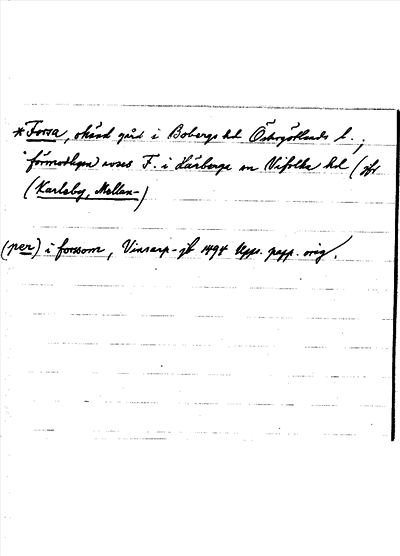 *Forsa, okänd gård i Bobergs hd Östergötlands l.;
förmodligen avses F. i Härberga sn Vifolka hd (jfr
(Karleby, Mellan-)
(per) i forssom, Vinsarp-jb 1494 Upps. papp. orig.